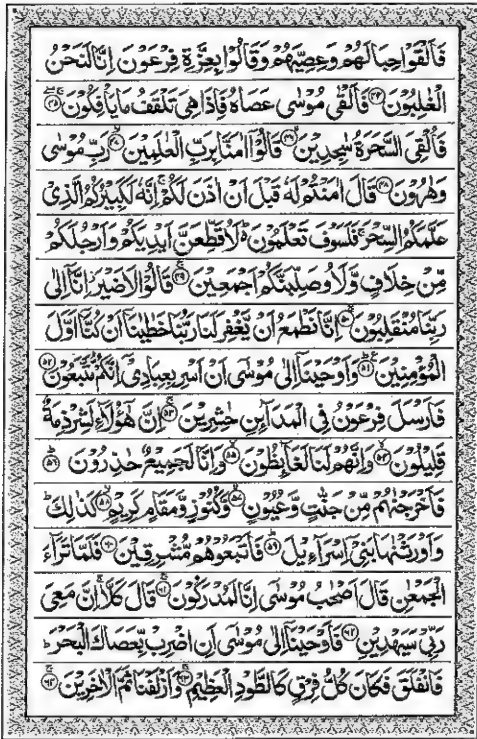 فَاَلۡقَوۡا حِبَالَهُمۡ وَعِصِيَّهُمۡ وَقَالُوۡا بِعِزَّةِ فِرۡعَوۡنَ اِنَّا لَنَحۡنُ
الۡغٰلِبُوۡنَ ﴿۴۴﴾ فَاَلۡقٰى مُوۡسٰى عَصَاهُ فَاِذَا هِىَ تَلۡقَفُ مَا يَاۡفِكُوۡنَ ﴿۴۵﴾
فَاُلۡقِىَ السَّحَرَةُ سٰجِدِيۡنَ ﴿۴۶﴾ قَالُوۡۤا اٰمَنَّا بِرَبِّ الۡعٰلَمِيۡنَ ﴿۴۷﴾ رَبِّ مُوۡسٰى
وَهٰرُوۡنَ ﴿۴۸﴾ قَالَ اٰمَنۡتُمۡ لَهٗ قَبۡلَ اَنۡ اٰذَنَ لَكُمۡ اِنَّهٗ لَكَبِيۡرُكُمُ الَّذِىۡ
عَلَّمَكُمُ السِّحۡرَ فَلَسَوۡفَ تَعۡلَمُوۡنَ لَاُقَطِّعَنَّ اَيۡدِيَكُمۡ وَاَرۡجُلَكُمۡ
مِّنۡ خِلَافٍ وَّلَاُوصَلِّبَنَّكُمۡ اَجۡمَعِيۡنَ ﴿۴۹﴾ قَالُوۡا لَا ضَيۡرَ اِنَّاۤ اِلٰى
رَبِّنَا مُنۡقَلِبُوۡنَ ﴿۵۰﴾ اِنَّا نَطۡمَعُ اَنۡ يَّغۡفِرَ لَنَا رَبُّنَا خَطٰيٰنَاۤ اَنۡ كُنَّاۤ اَوَّلَ
الۡمُؤۡمِنِيۡنَ ﴿۵۱﴾ وَاَوۡحَيۡنَاۤ اِلٰى مُوۡسٰٓى اَنۡ اَسۡرِ بِعِبَادِىۡۤ اِنَّكُمۡ مُّتَّبَعُوۡنَ ﴿۵۲﴾
فَاَرۡسَلَ فِرۡعَوۡنُ فِى الۡمَدَآٮِٕنِ حٰشِرِيۡنَ ﴿۵۳﴾ اِنَّ هٰٓؤُلَاۤءِ لَشِرۡذِمَةٌ
قَلِيۡلُوۡنَ ﴿۵۴﴾ وَاِنَّهُمۡ لَنَا لَغَآٮِٕظُوۡنَ ﴿۵۵﴾ وَاِنَّا لَجَمِيۡعٌ حٰذِرُوۡنَ ﴿۵۶﴾
فَاَخۡرَجۡنٰهُمۡ مِّنۡ جَنّٰتٍ وَّعُيُوۡنٍ ﴿۵۷﴾ وَّكُنُوۡزٍ وَّمَقَامٍ كَرِيۡمٍ ﴿۵۸﴾ كَذٰلِكَ
وَاَوۡرَثۡنٰهَا بَنِىۡۤ اِسۡرَآءِيۡلَ ﴿۵۹﴾ فَاَتۡبَعُوۡهُمۡ مُّشۡرِقِيۡنَ ﴿۶۰﴾ فَلَمَّا تَرَآءَ
الۡجَمۡعٰنِ قَالَ اَصۡحٰبُ مُوۡسٰٓى اِنَّا لَمُدۡرَكُوۡنَ ﴿۶۱﴾ قَالَ كَلَّا اِنَّ مَعِىَ
رَبِّىۡ سَيَهۡدِيۡنِ ﴿۶۲﴾ فَاَوۡحَيۡنَاۤ اِلٰى مُوۡسٰٓى اَنِ اضۡرِبْ بِّعَصَاكَ الۡبَحۡرَ
فَانۡفَلَقَ فَكَانَ كُلُّ فِرۡقٍ كَالطَّوۡدِ الۡعَظِيۡمِ ﴿۶۳﴾ وَاَزۡلَفۡنَا ثَمَّ الۡاٰخَرِيۡنَ ﴿۶۴﴾